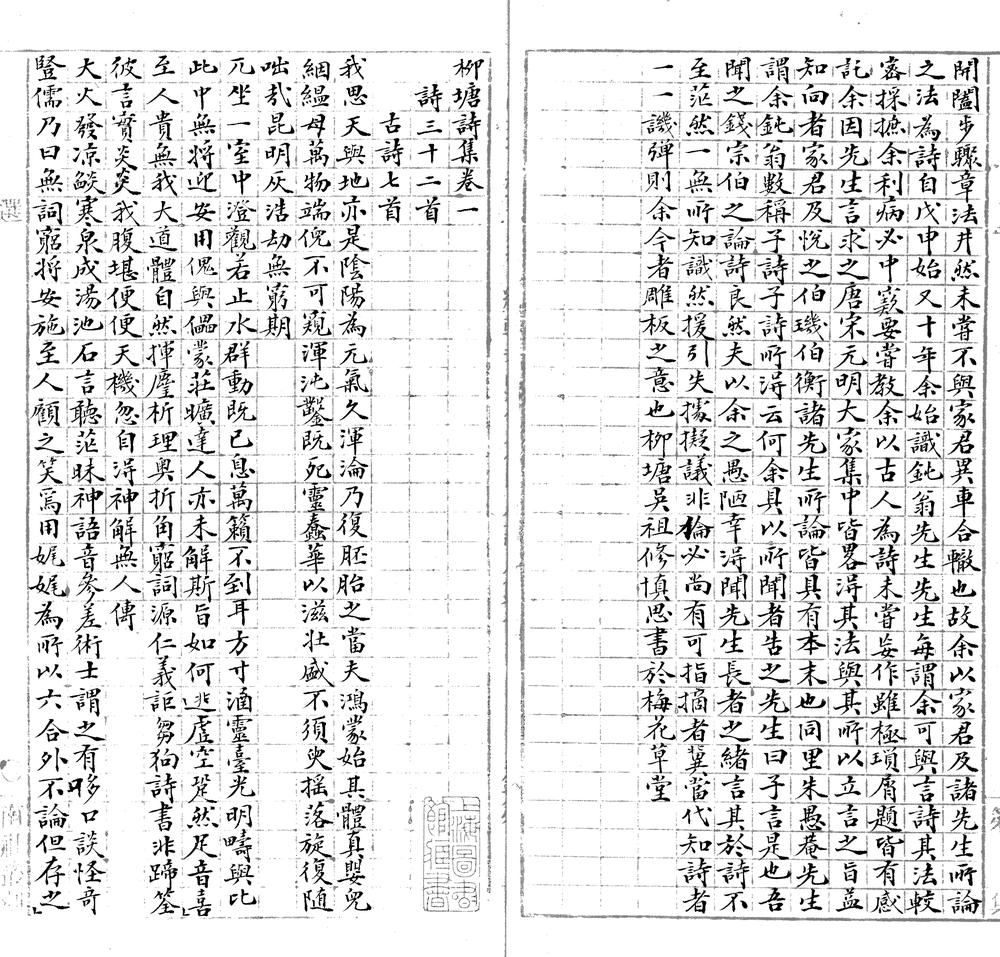 開闔步驟章法井然未嘗不與家君異車合轍也故余以家君及諸先生所論
之法為詩自戊申始又十年余始識鈍翁先生先生每謂余可與言詩其法較
密採摭余利病必中窾要嘗教余以古人為詩未嘗妄作雖極瑣屑題皆有感
託余因先生言求之唐宋元明大家集中皆畧得其法與其所以立言之旨益
知向者家君及悅之伯璣伯衡諸先生所論皆具有本末也同里朱愚菴先生
謂余鈍翁數稱子詩子詩所得云何余具以所聞者告之先生曰子言是也吾
聞之錢宗伯之論詩良然夫以余之愚陋幸得聞先生長者之緒言其於詩不
至茫然一無所知識然援引失據擬議非倫必尚有可指摘者冀當代知詩者
一一譏彈則余今者雕板之意也柳塘吳祖修慎思書於梅花草堂
柳塘詩集卷一
詩三十二首
古詩七首
我思天與地亦是陰陽為元氣久渾淪乃復胚胎之當夫鴻蒙始其體真嬰兒
絪縕母萬物端倪不可窺渾沌鑿既死靈蠢華以滋壯盛不須臾搖落旋復隨
咄哉昆明灰浩劫無窮期
兀坐一室中澄觀若止水群動既已息萬籟不到耳方寸涵靈臺光明疇與比
此中無將迎安用傀與儡蒙莊曠達人亦未解斯旨如何逃虛空跫然足音喜
至人貴無我大道體自然揮麈析理奧折角窮詞源仁義詎芻狗詩書非蹄筌
彼言實炎炎我腹堪便便天機忽自得神解無人傳
大火發凉燄寒泉成湯池石言聽茫昧神語音參差術士謂之有哆口談怪奇
豎儒乃曰無詞窮將安施至人顧之笑焉用娓娓為所以六合外不論但存之